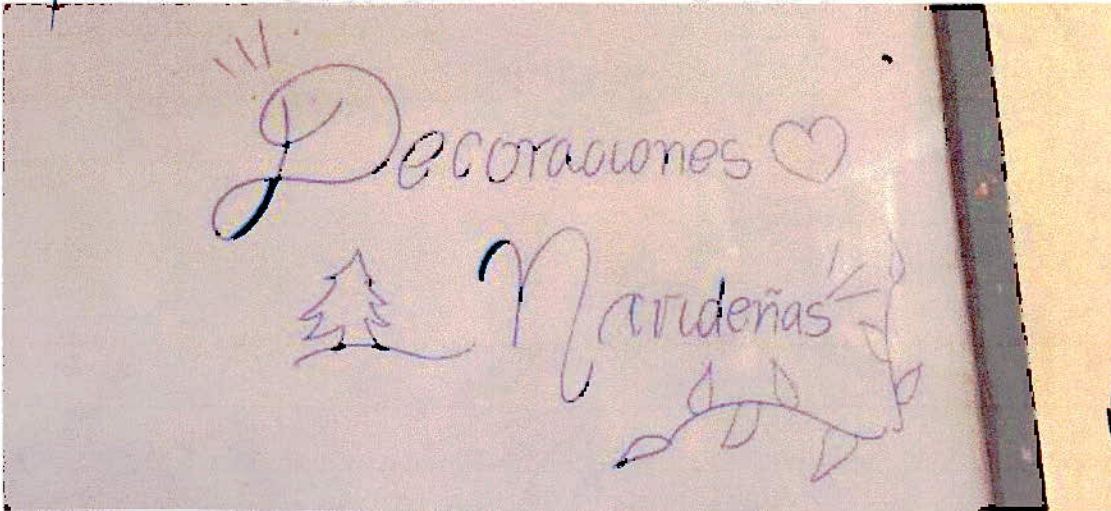 Decoraciones
Navideñas